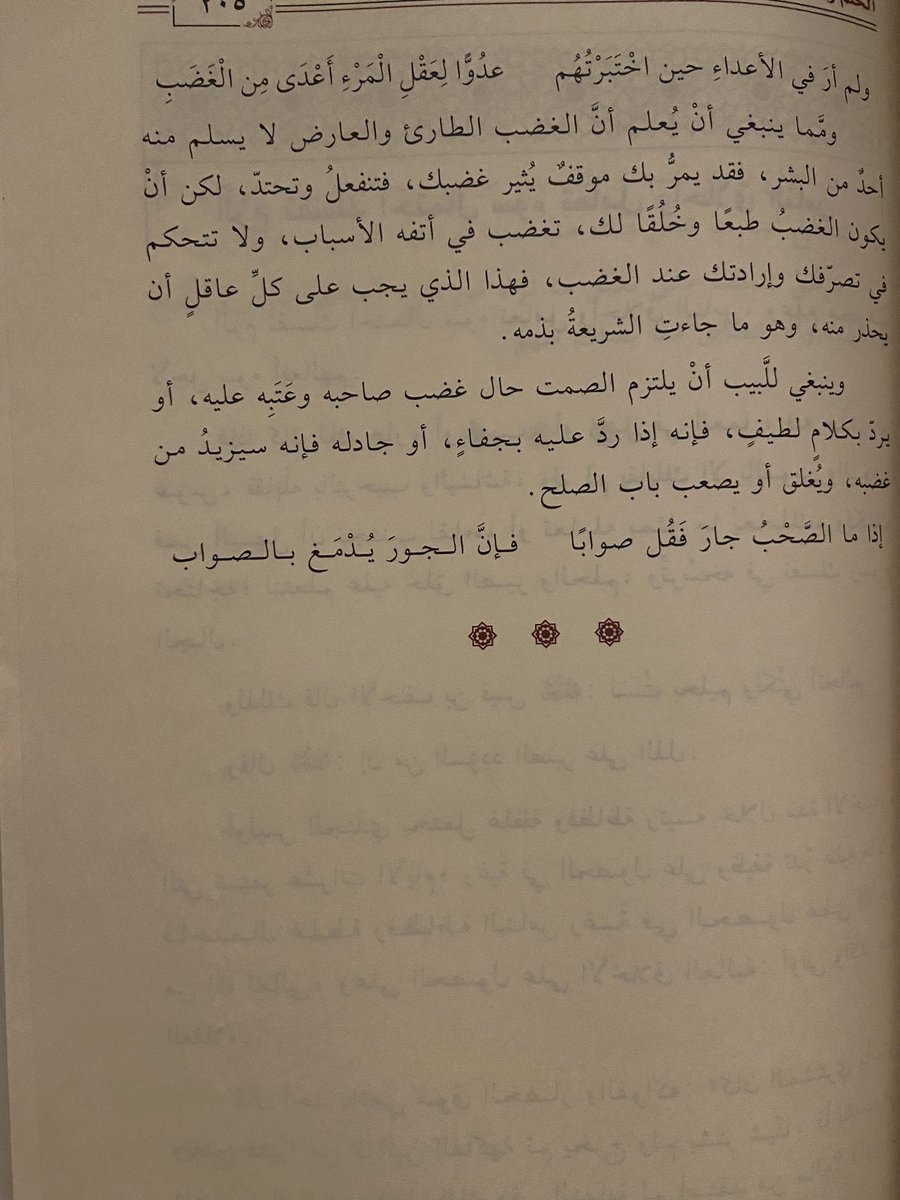 ٢٠٥
ولم أرَ في الأعداءِ حين اخْتَبَرْتُهُم عدُوًّا لِعَقْلِ الْمَرْءِ أَعْدَى مِن الْغَضَبِ
ومَّما ينبغي أنْ يُعلم أنَّ الغضب الطارئ والعارض لا يسلم منه
أحدٌ من البشر، فقد يمرُّ بك موقفٌ يُثير غضبك، فتنفعلُ وتحتدّ، لكن أنْ
يكون الغضبُ طبعًا وخُلُقًا لك، تغضب في أتفه الأسباب، ولا تتحكم
في تصرّفك وإرادتك عند الغضب، فهذا الذي يجب على كلِّ عاقلٍ أن
يحذر منه، وهو ما جاءتِ الشريعةُ بذمه.
وينبغي للَّبيب أنْ يلتزم الصمت حال غضب صاحبه وعَتَبِه عليه، أو
يردّ بكلامٍ لطيفٍ، فإنه إذا ردَّ عليه بجفاءٍ، أو جادله فإنه سيزيدُ من
غضبه، ويُغلق أو يصعب باب الصلح.
إذا ما الصَّحْبُ جارَ فَقُل صوابًا فـإنَّ الـجـورَ يُـدْمَـغ بـالـصـواب